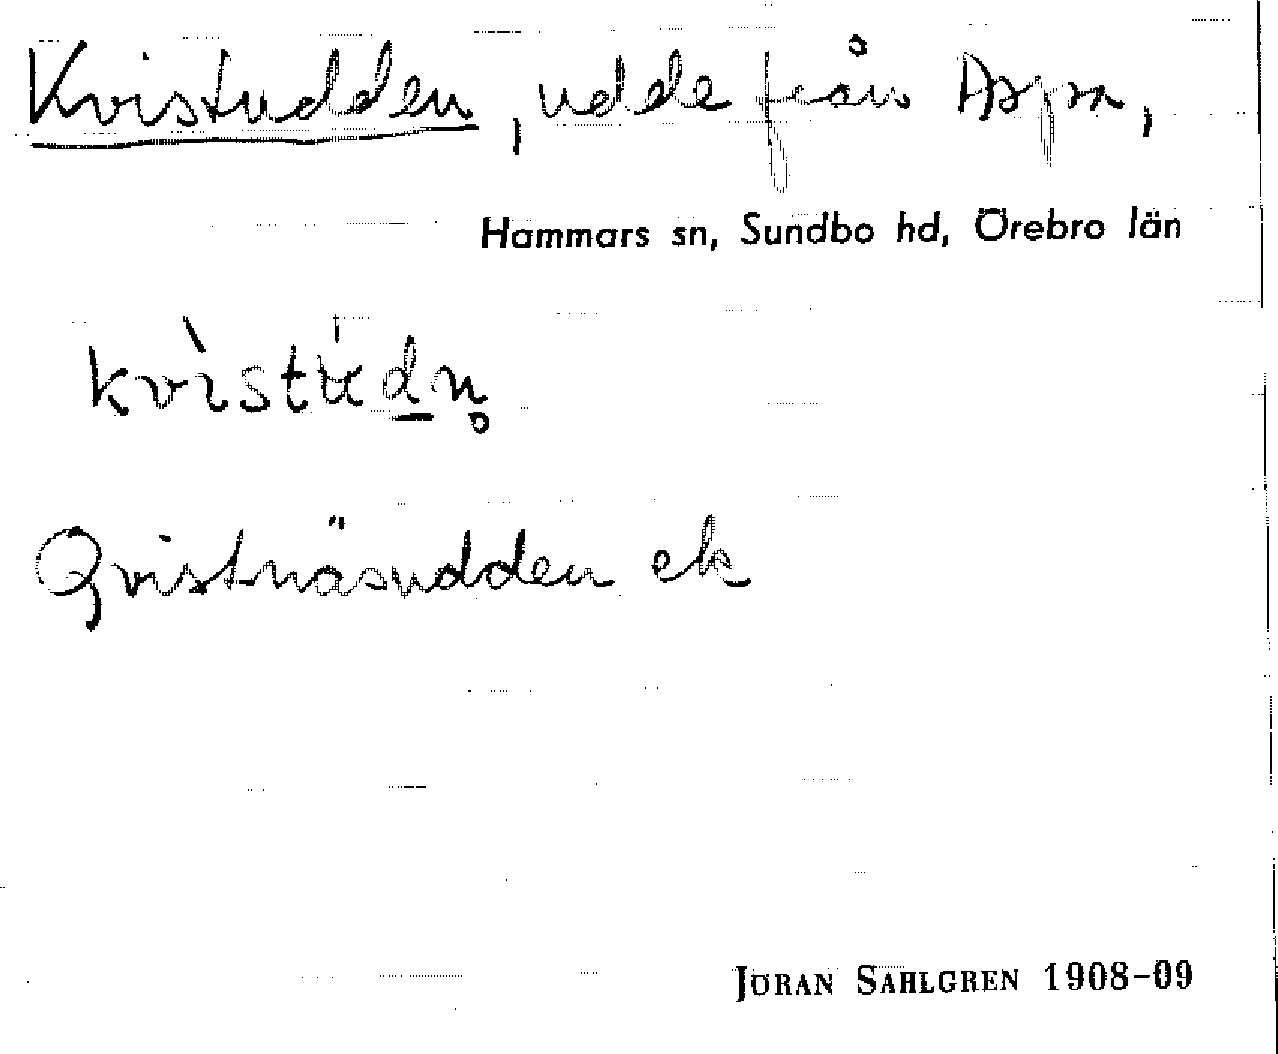 Kvistudden, udde från Aspa,
Hammars sn, Sundbo hd, Örebro län
kvìstúdn̥
Qvistnäsudden ek
JÖRAN SAHLGREN 1908-09